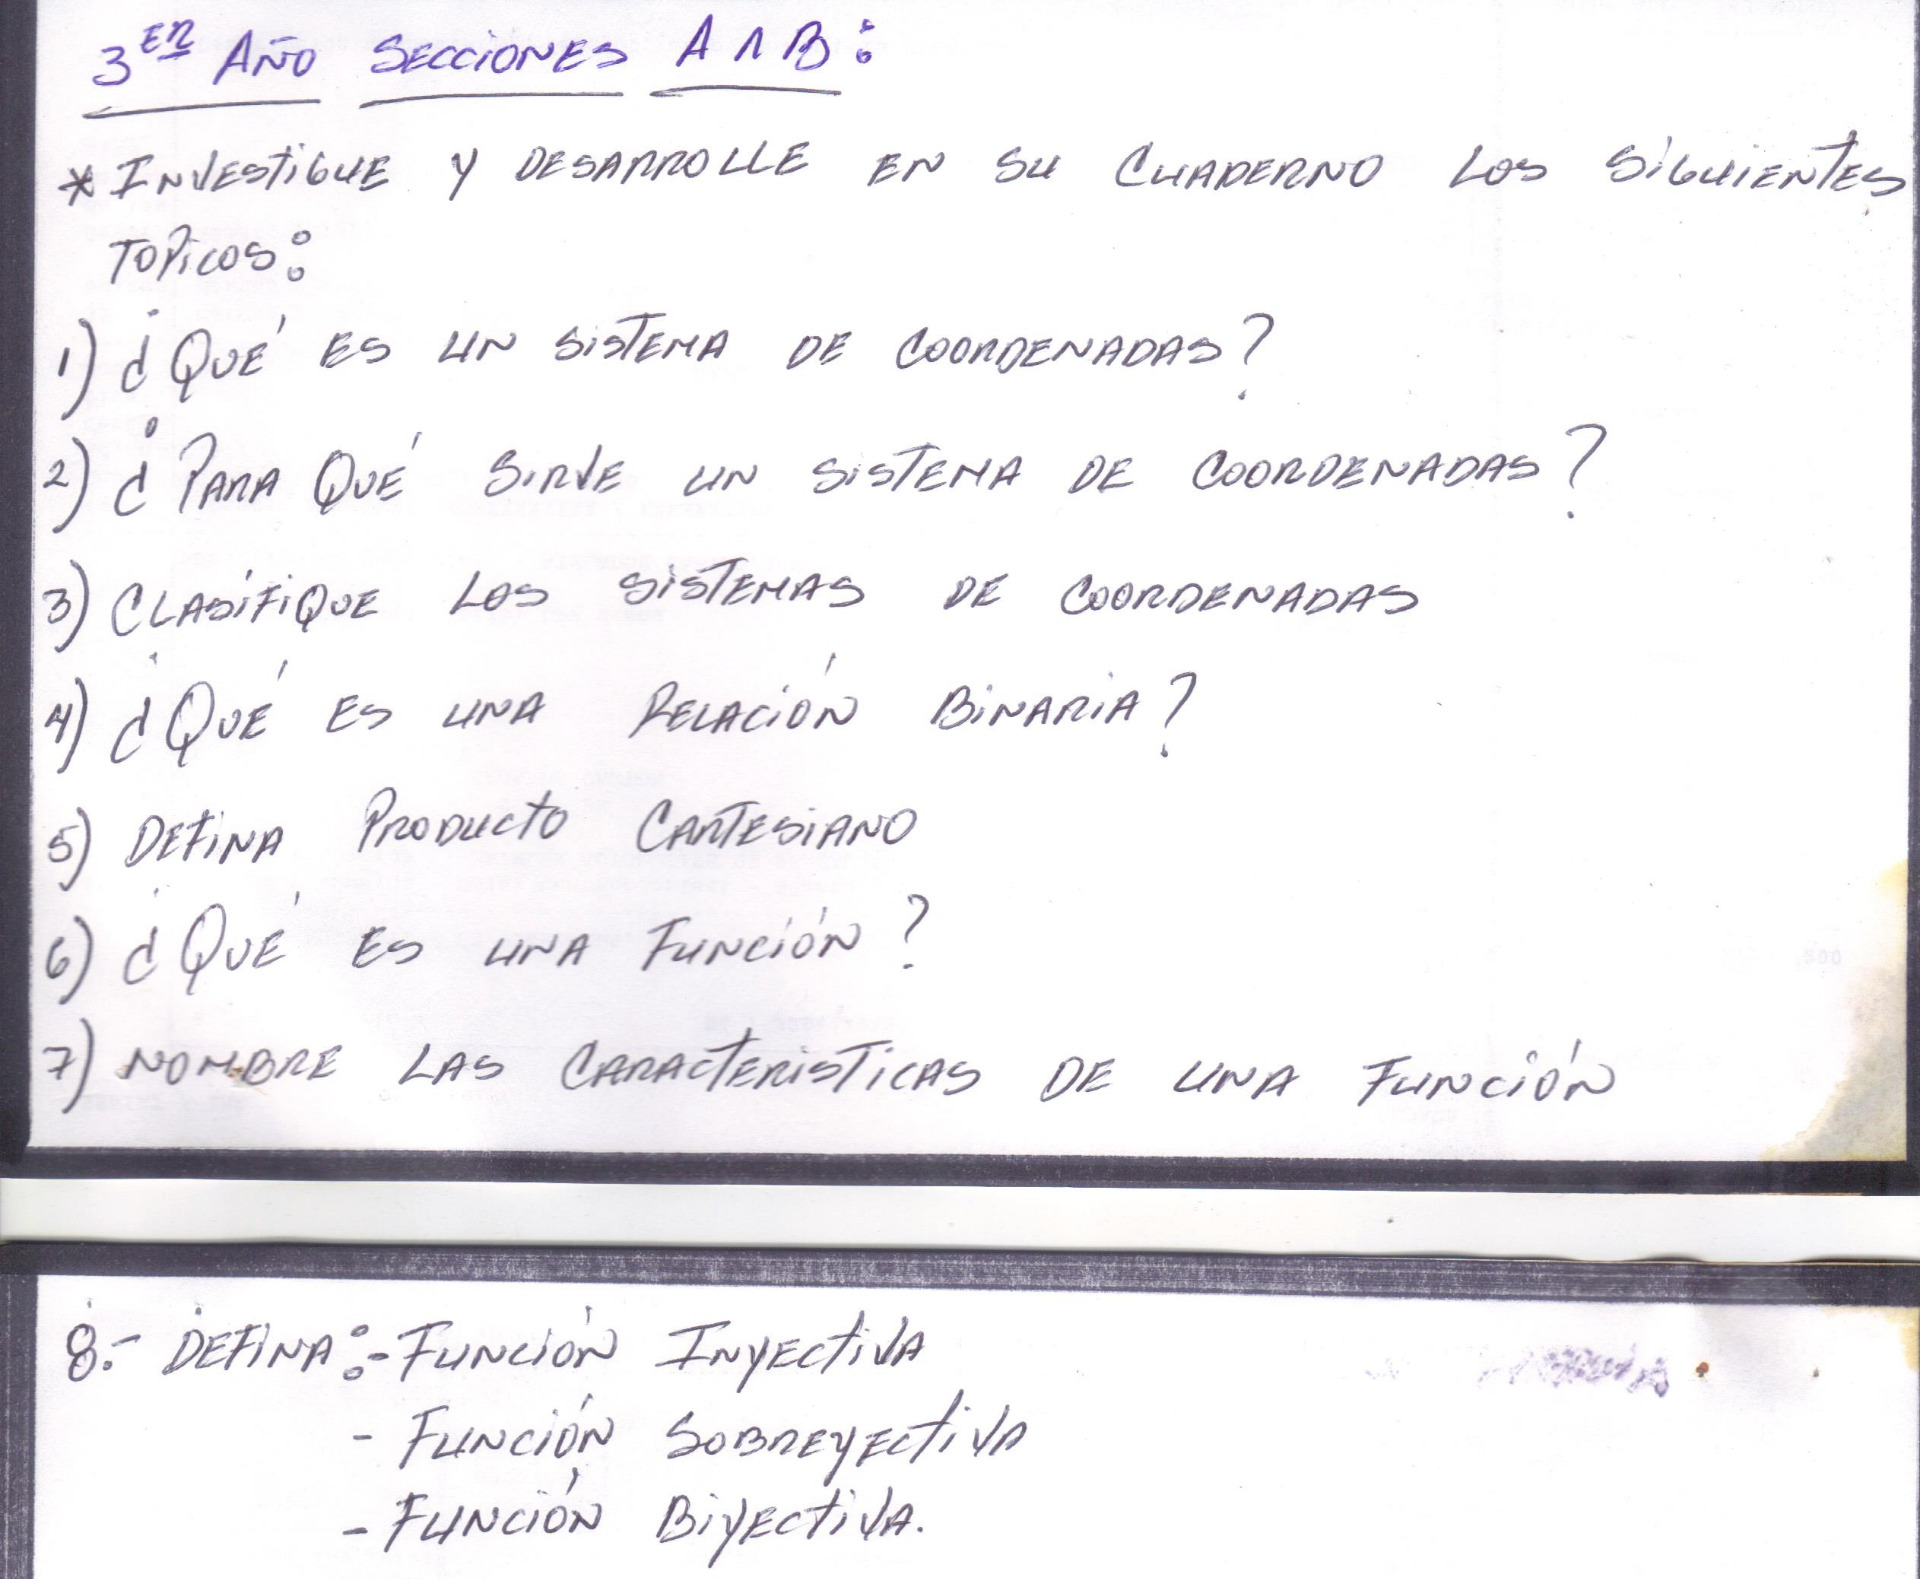 3ER AÑO SECCIONES A ∧ B:
* INVESTIGUE Y DESARROLLE EN SU CUADERNO LOS SIGUIENTES
TOPICOS:
1) ¿QUÉ ES UN SISTEMA DE COORDENADAS?
2) ¿PARA QUÉ SIRVE UN SISTEMA DE COORDENADAS?
3) CLASIFIQUE LOS SISTEMAS DE COORDENADAS
4) ¿QUÉ ES UNA RELACIÓN BINARIA?
5) DEFINA PRODUCTO CARTESIANO
6) ¿QUÉ ES UNA FUNCIÓN?
7) NOMBRE LAS CARACTERISTICAS DE UNA FUNCIÓN
8.- DEFINA: - FUNCIÓN INYECTIVA
- FUNCIÓN SOBREYECTIVA
- FUNCIÓN BIYECTIVA.